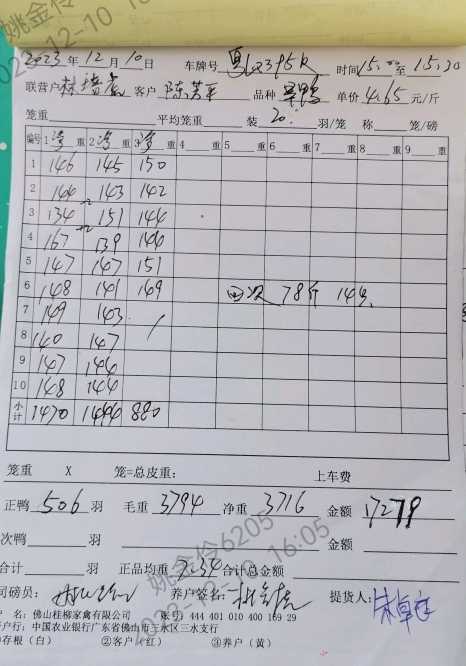 2023年 12月 10日 车牌号 时间 15:00 至 15:20
联营户 客户 陈芳平 品种 单价 4.65 元/斤
笼重 平均笼重 装 20 羽/笼 称 笼/磅
编号 1 净重 2 净重 3 净重 4 重 5 重 6 重 7 重 8 重 9 重
1 146 145 150
2 144 143 142
3 134 151 144
4 167 139 144
5 147 147 151
6 148 141 149 回次 78斤 14羽
7 149 143
8 140 147
9 147 144
10 148 144
小计 1470 1444 880
笼重 X 笼=总皮重： 上车费
正鸭 506 羽 毛重 3794 净重 3716 金额 17279
次鸭 羽 金额
合计 羽 正品均重 7.34 合计总金额
司磅员： 养户签名： 提货人：
户 名：佛山桂柳家禽有限公司 账 号：444 401 010 400 169 29
户行：中国农业银行广东省佛山市三水区三水支行
①存根（白） ②客户（红） ③养户（黄）
姚金伶6205
2023-12-10 16:05